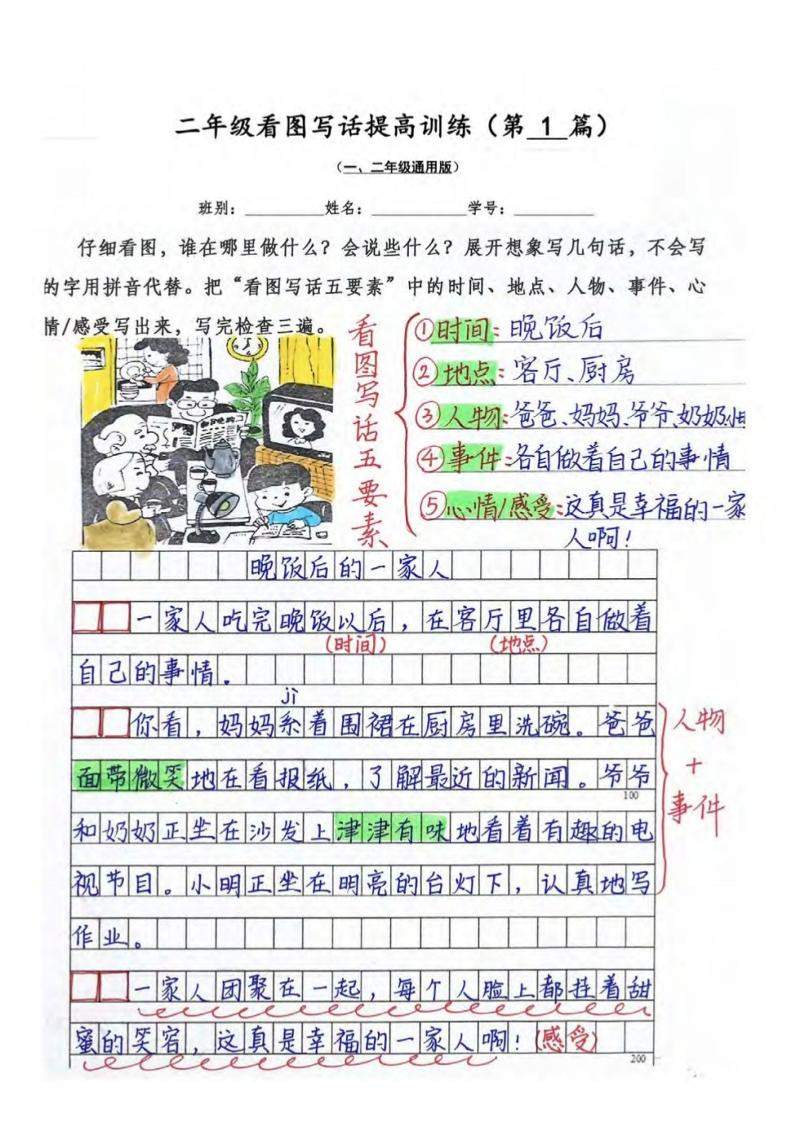 二年级看图写话提高训练（第 1 篇）
（一、二年级通用版）
班别：________ 姓名：________ 学号：________
仔细看图，谁在哪里做什么？会说些什么？展开想象写几句话，不会写
的字用拼音代替。把“看图写话五要素”中的时间、地点、人物、事件、心
情/感受写出来，写完检查三遍。
看图写话五要素
①时间：晚饭后
②地点：客厅、厨房
③人物：爸爸、妈妈、爷爷、奶奶
④事件：各自做着自己的事情
⑤心情/感受：这真是幸福的一家
人啊！
晚饭后的一家人
一家人吃完晚饭以后，在客厅里各自做着
(时间) (地点)
自己的事情。
jì
你看，妈妈系着围裙在厨房里洗碗。爸爸
面带微笑地在看报纸，了解最近的新闻。爷爷
100
和奶奶正坐在沙发上津津有味地看着有趣的电
视节目。小明正坐在明亮的台灯下，认真地写
作业。
人物
+
事件
一家人团聚在一起，每个人脸上都挂着甜
蜜的笑容，这真是幸福的一家人啊！(感受)
200